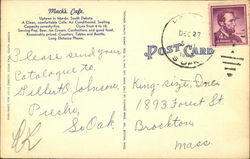 Mack's Cafe
Uptown in Martin South Dakota
A Clean, comfortable Cafe. Air Conditioned. Seating
Capacity seventy-five. Open from 6 to 12.
Serving Pop, Beer, Ice Cream, Confections and good food.
Reasonably priced. Counters, Tables and Booths.
Long Distance Phone.
Please send your
Catalogue to.
Gilbert Johnson
Presho,
So Dak
POST CARD
DEC 27
S. DAK.
King-size, Inc.
1893 Forest St
Brockton
Mass.